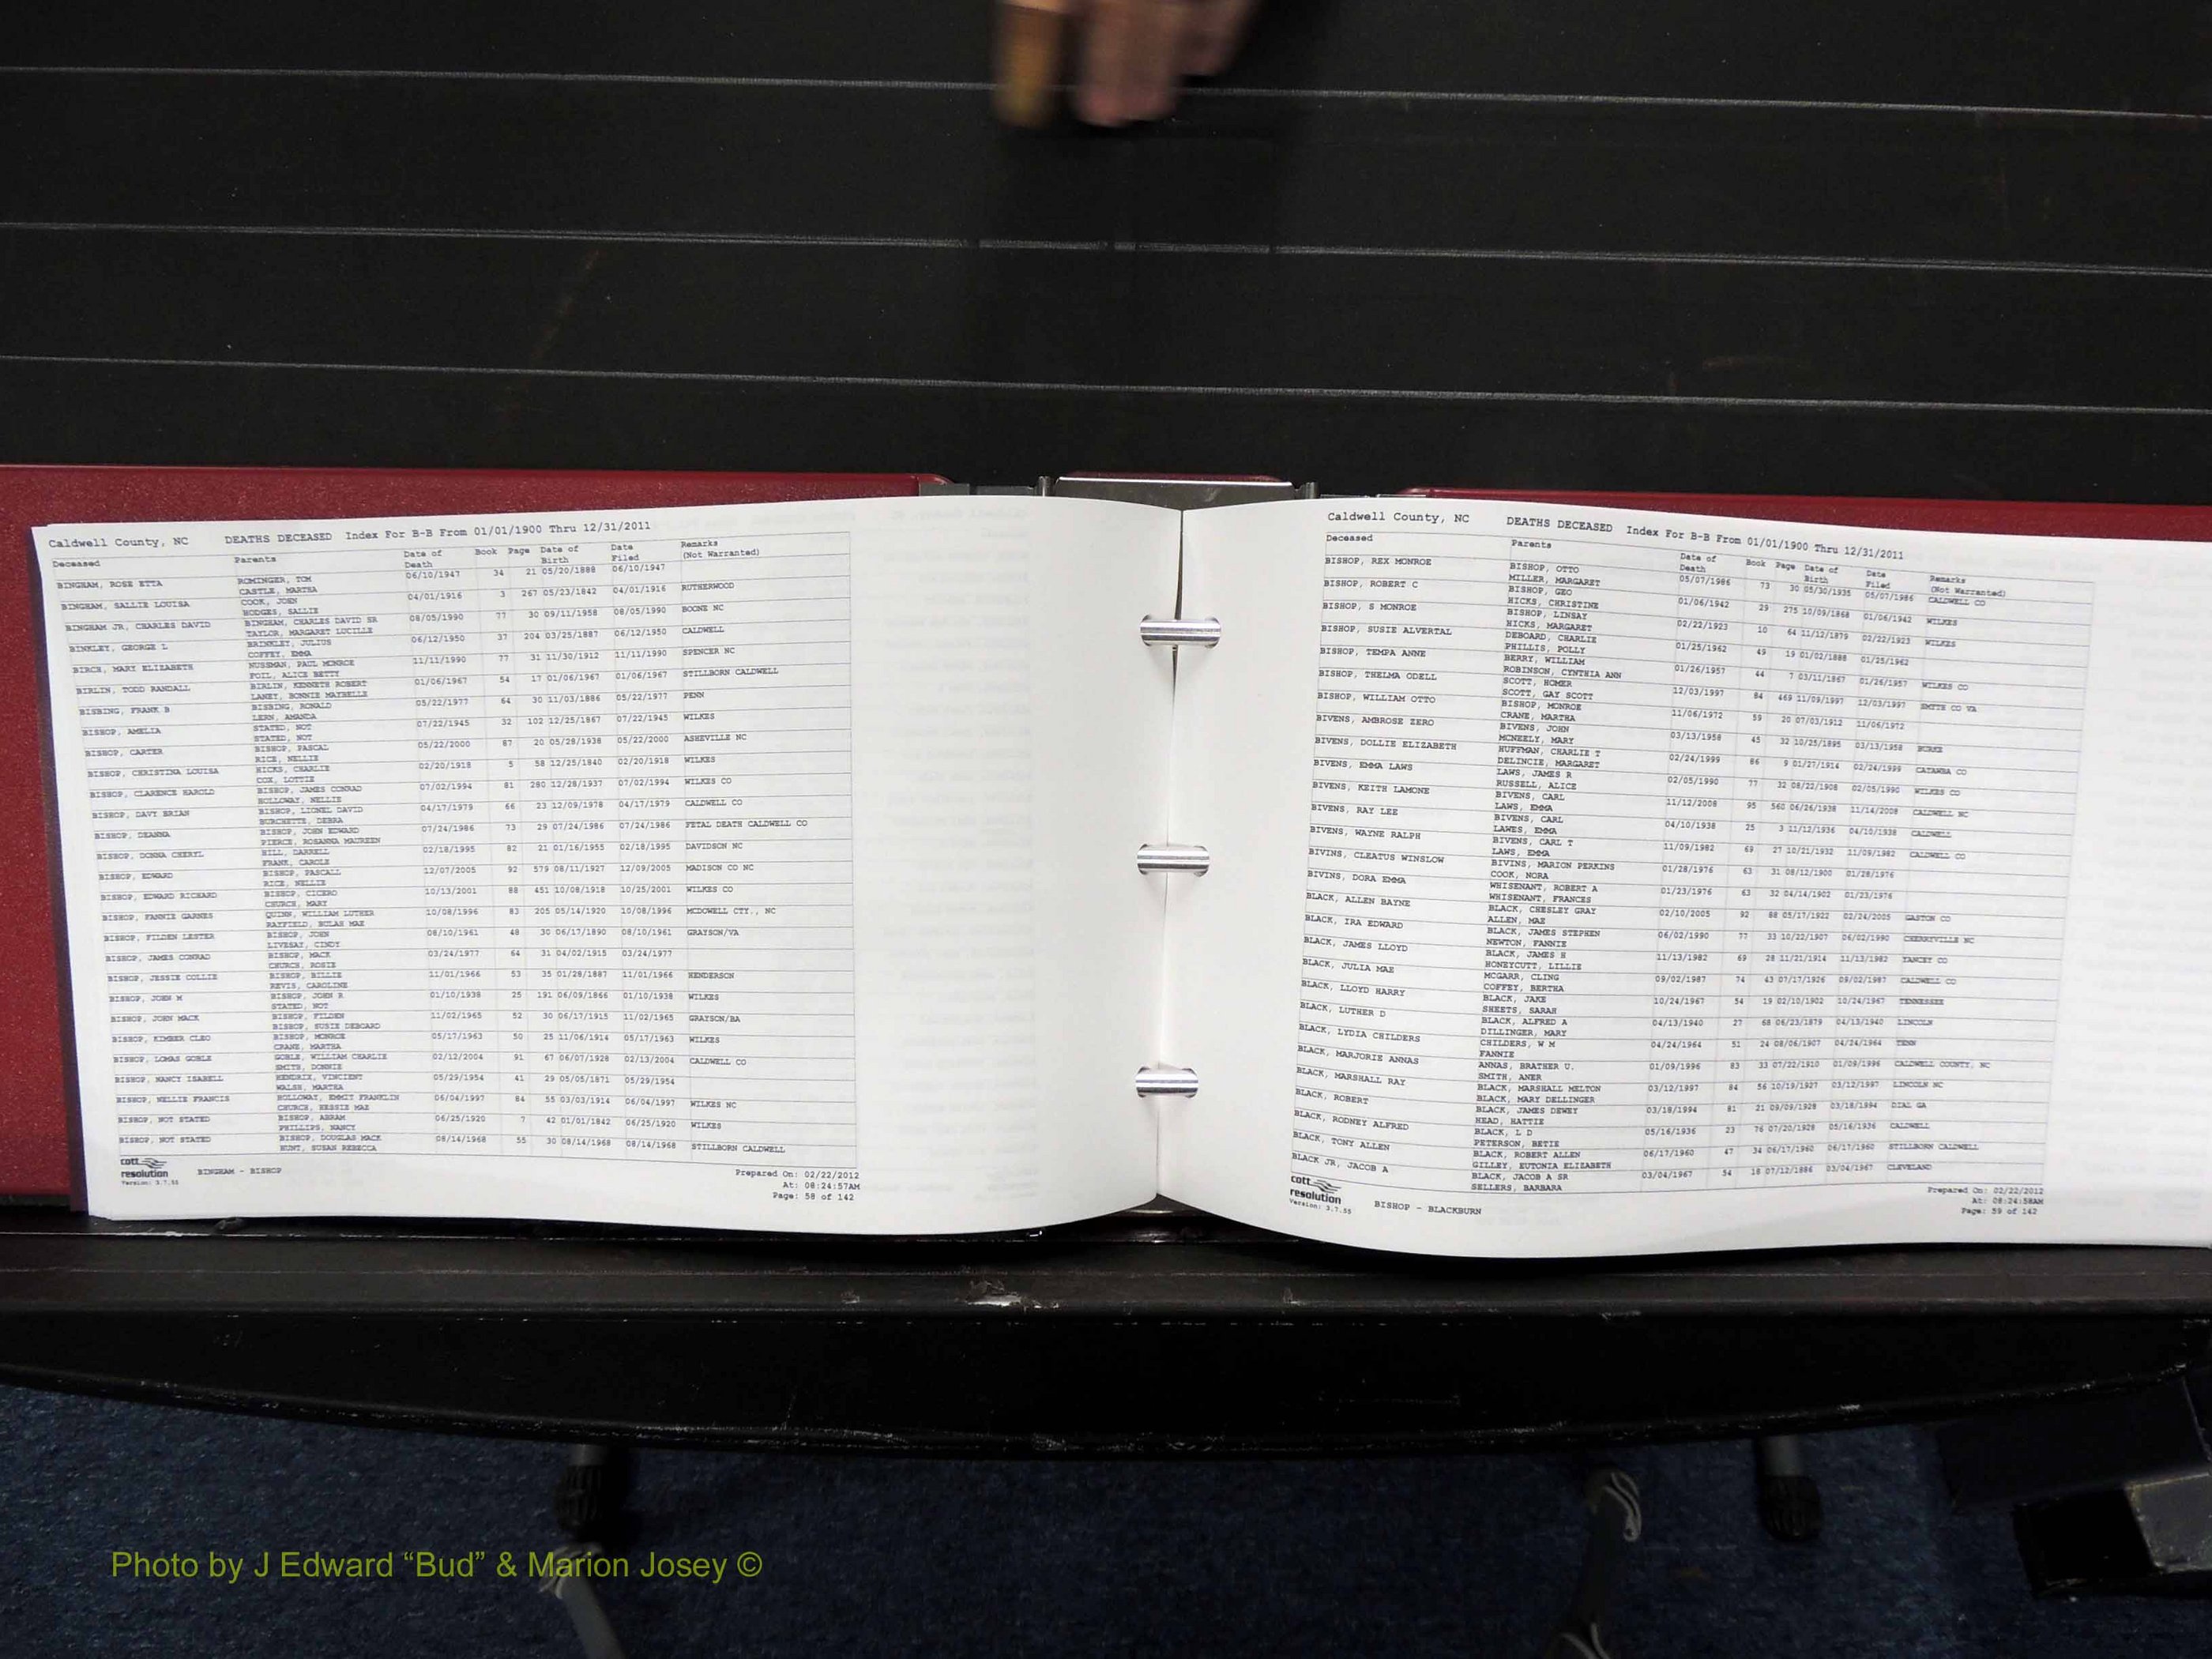 Caldwell County, NC DEATHS DECEASED Index For B-B From 01/01/1900 Thru 12/31/2011
Deceased Parents Date of Death Book Page Date of Birth Date Filed Remarks (Not Warranted)
BINGHAM, ROSE ETTA ROMINGER, TOM 06/10/1947 34 21 05/20/1888 06/10/1947
CASTLE, MARTHA
BINGHAM, SALLIE LOUISA COOK, JOHN 04/01/1916 3 267 05/23/1842 04/01/1916 RUTHERWOOD
HODGES, SALLIE
BINGHAM JR, CHARLES DAVID BINGHAM, CHARLES DAVID SR 08/05/1990 77 30 09/11/1958 08/05/1990 BOONE NC
TAYLOR, MARGARET LUCILLE
BINKLEY, GEORGE L BRINKLEY, JULIUS 06/12/1950 37 204 03/25/1887 06/12/1950 CALDWELL
COFFEY, EMMA
BIRCH, MARY ELIZABETH NUSSMAN, PAUL MONROE 11/11/1990 77 31 11/30/1912 11/11/1990 SPENCER NC
FOIL, ALICE BETTY
BIRLIN, TODD RANDALL BIRLIN, KENNETH ROBERT 01/06/1967 54 17 01/06/1967 01/06/1967 STILLBORN CALDWELL
LANEY, BONNIE MAYBELLE
BISBING, FRANK B BISBING, RONALD 05/22/1977 64 30 11/03/1886 05/22/1977 PENN
LERN, AMANDA
BISHOP, AMELIA STATED, NOT 07/22/1945 32 102 12/25/1867 07/22/1945 WILKES
STATED, NOT
BISHOP, CARTER BISHOP, PASCAL 05/22/2000 87 20 05/28/1938 05/22/2000 ASHEVILLE NC
RICE, NELLIE
BISHOP, CHRISTINA LOUISA HICKS, CHARLIE 02/20/1918 5 58 12/25/1840 02/20/1918 WILKES
COX, LOTTIE
BISHOP, CLARENCE HAROLD BISHOP, JAMES CONRAD 07/02/1994 81 280 12/28/1937 07/02/1994 WILKES CO
HOLLOWAY, NELLIE
BISHOP, DAVY BRIAN BISHOP, LIONEL DAVID 04/17/1979 66 23 12/09/1978 04/17/1979 CALDWELL CO
BURCHETTE, DEBRA
BISHOP, DEANNA BISHOP, JOHN EDWARD 07/24/1986 73 29 07/24/1986 07/24/1986 FETAL DEATH CALDWELL CO
PIERCE, ROSANNA MAUREEN
BISHOP, DONNA CHERYL HILL, DARRELL 02/18/1995 82 21 01/16/1955 02/18/1995 DAVIDSON NC
FRANK, CAROLE
BISHOP, EDWARD BISHOP, PASCALL 12/07/2005 92 579 08/11/1927 12/09/2005 MADISON CO NC
RICE, NELLIE
BISHOP, EDWARD RICHARD BISHOP, CICERO 10/13/2001 88 451 10/08/1918 10/25/2001 WILKES CO
CHURCH, MARY
BISHOP, FANNIE GARNES QUINN, WILLIAM LUTHER 10/08/1996 83 205 05/14/1920 10/08/1996 MCDOWELL CTY., NC
RAYFIELD, BULAH MAE
BISHOP, FILDEN LESTER BISHOP, JOHN 08/10/1961 48 30 06/17/1890 08/10/1961 GRAYSON/VA
LIVESAY, CINDY
BISHOP, JAMES CONRAD BISHOP, MACK 03/24/1977 64 31 04/02/1915 03/24/1977
CHURCH, ROSIE
BISHOP, JESSIE COLLIE BISHOP, BILLIE 11/01/1966 53 35 01/28/1887 11/01/1966 HENDERSON
REVIS, CAROLINE
BISHOP, JOHN M BISHOP, JOHN R 01/10/1938 25 191 06/09/1866 01/10/1938 WILKES
STATED, NOT
BISHOP, JOHN MACK BISHOP, FILDEN 11/02/1965 52 30 06/17/1915 11/02/1965 GRAYSON/BA
BISHOP, SUSIE DEBOARD
BISHOP, KIMBER CLEO BISHOP, MONROE 05/17/1963 50 25 11/06/1914 05/17/1963 WILKES
CRANE, MARTHA
BISHOP, LOMAS GOBLE GOBLE, WILLIAM CHARLIE 02/12/2004 91 67 06/07/1928 02/13/2004 CALDWELL CO
SMITH, DONNIE
BISHOP, NANCY ISABELL KENDRIX, VINCIENT 05/29/1954 41 29 05/05/1871 05/29/1954
WALSH, MARTHA
BISHOP, NELLIE FRANCIS HOLLOWAY, EMMIT FRANKLIN 06/04/1997 84 55 03/03/1914 06/04/1997 WILKES NC
CHURCH, BESSIE MAE
BISHOP, NOT STATED BISHOP, ABRAM 06/25/1920 7 42 01/01/1842 06/25/1920 WILKES
PHILLIPS, NANCY
BISHOP, NOT STATED BISHOP, DOUGLAS MACK 08/14/1968 55 30 08/14/1968 08/14/1968 STILLBORN CALDWELL
HUNT, SUSAN REBECCA
cott
resolution
Version: 3.7.55
BINGHAM - BISHOP
Prepared On: 02/22/2012
At: 08:24:57AM
Page: 58 of 142
Caldwell County, NC DEATHS DECEASED Index For B-B From 01/01/1900 Thru 12/31/2011
Deceased Parents Date of Death Book Page Date of Birth Date Filed Remarks (Not Warranted)
BISHOP, REX MONROE BISHOP, OTTO 05/07/1986 73 30 05/30/1935 05/07/1986 CALDWELL CO
MILLER, MARGARET
BISHOP, ROBERT C BISHOP, GEO 01/06/1942 29 275 10/09/1868 01/06/1942 WILKES
HICKS, CHRISTINE
BISHOP, S MONROE BISHOP, LINSAY 02/22/1923 10 64 11/12/1879 02/22/1923 WILKES
HICKS, MARGARET
BISHOP, SUSIE ALVERTAL DEBOARD, CHARLIE 01/25/1962 49 19 01/02/1888 01/25/1962
PHILLIS, POLLY
BISHOP, TEMPA ANNE BERRY, WILLIAM 01/26/1957 44 7 03/11/1867 01/26/1957 WILKES CO
ROBINSON, CYNTHIA ANN
BISHOP, THELMA ODELL SCOTT, HOMER 12/03/1997 84 469 11/09/1997 12/03/1997 SMYTH CO VA
SCOTT, GAY SCOTT
BISHOP, WILLIAM OTTO BISHOP, MONROE 11/06/1972 59 20 07/03/1912 11/06/1972
CRANE, MARTHA
BIVENS, AMBROSE ZERO BIVENS, JOHN 03/13/1958 45 32 10/25/1895 03/13/1958 BURKE
MCNEELY, MARY
BIVENS, DOLLIE ELIZABETH HUFFMAN, CHARLIE T 02/24/1999 86 9 01/27/1914 02/24/1999 CATAWBA CO
DELINCIE, MARGARET
BIVENS, EMMA LAWS LAWS, JAMES R 02/05/1990 77 32 08/22/1908 02/05/1990 WILKES CO
RUSSELL, ALICE
BIVENS, KEITH LAMONE BIVENS, CARL 11/12/2008 95 560 06/26/1938 11/14/2008 CALDWELL NC
LAWS, EMMA
BIVENS, RAY LEE BIVENS, CARL 04/10/1938 25 3 11/12/1936 04/10/1938 CALDWELL
LAWES, EMMA
BIVENS, WAYNE RALPH BIVENS, CARL T 11/09/1982 69 27 10/21/1932 11/09/1982 CALDWELL CO
LAWS, EMMA
BIVINS, CLEATUS WINSLOW BIVINS, MARION PERKINS 01/28/1976 63 31 08/12/1900 01/28/1976
COOK, NORA
BIVINS, DORA EMMA WHISENANT, ROBERT A 01/23/1976 63 32 04/14/1902 01/23/1976
WHISENANT, FRANCES
BLACK, ALLEN BAYNE BLACK, CHESLEY GRAY 02/10/2005 92 88 05/17/1922 02/24/2005 GASTON CO
ALLEN, MAE
BLACK, IRA EDWARD BLACK, JAMES STEPHEN 06/02/1990 77 33 10/22/1907 06/02/1990 CHERRYVILLE NC
NEWTON, FANNIE
BLACK, JAMES LLOYD BLACK, JAMES H 11/13/1982 69 28 11/21/1914 11/13/1982 YANCEY CO
HONEYCUTT, LILLIE
BLACK, JULIA MAE MCGARR, CLING 09/02/1987 74 43 07/17/1926 09/02/1987 CALDWELL CO
COFFEY, BERTHA
BLACK, LLOYD HARRY BLACK, JAKE 10/24/1967 54 19 02/10/1902 10/24/1967 TENNESSEE
SHEETS, SARAH
BLACK, LUTHER D BLACK, ALFRED A 04/13/1940 27 68 06/23/1879 04/13/1940 LINCOLN
DILLINGER, MARY
BLACK, LYDIA CHILDERS CHILDERS, W M 04/24/1964 51 24 08/06/1907 04/24/1964 TENN
FANNIE
BLACK, MARJORIE ANNAS ANNAS, BRATHER U. 01/09/1996 83 33 07/22/1910 01/09/1996 CALDWELL COUNTY, NC
SMITH, ANER
BLACK, MARSHALL RAY BLACK, MARSHALL MELTON 03/12/1997 84 56 10/19/1927 03/12/1997 LINCOLN NC
BLACK, MARY DELLINGER
BLACK, ROBERT BLACK, JAMES DEWEY 03/18/1994 81 21 09/09/1928 03/18/1994 DIAL GA
HEAD, HATTIE
BLACK, RODNEY ALFRED BLACK, L D 05/16/1936 23 76 07/20/1928 05/16/1936 CALDWELL
PETERSON, BETIE
BLACK, TONY ALLEN BLACK, ROBERT ALLEN 06/17/1960 47 34 06/17/1960 06/17/1960 STILLBORN CALDWELL
GILLEY, EUTONIA ELIZABETH
BLACK JR, JACOB A BLACK, JACOB A SR 03/04/1967 54 18 07/12/1886 03/04/1967 CLEVELAND
SELLERS, BARBARA
cott
resolution
Version: 3.7.55
BISHOP - BLACKBURN
Prepared On: 02/22/2012
At: 08:24:58AM
Page: 59 of 142
Photo by J Edward “Bud” & Marion Josey ©